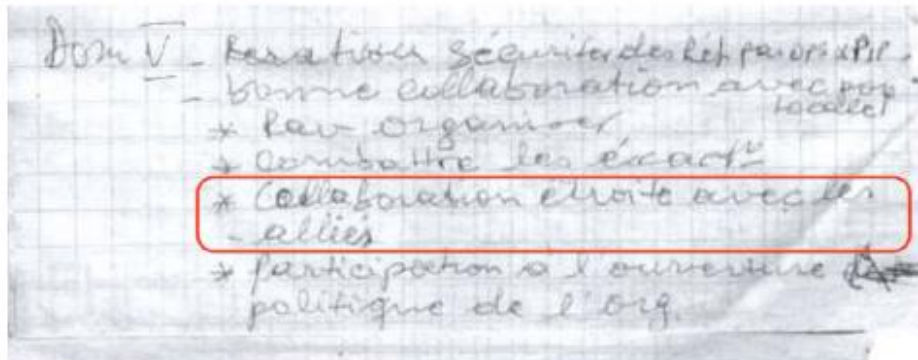 Dom V - sécuriter des Réf par ops
- bonne collaboration avec pop
locales
* Rav organiser
* combattre les écarts
* Collaboration étroite avec les
- alliés
* participation à l'ouverture
politique de l'org.